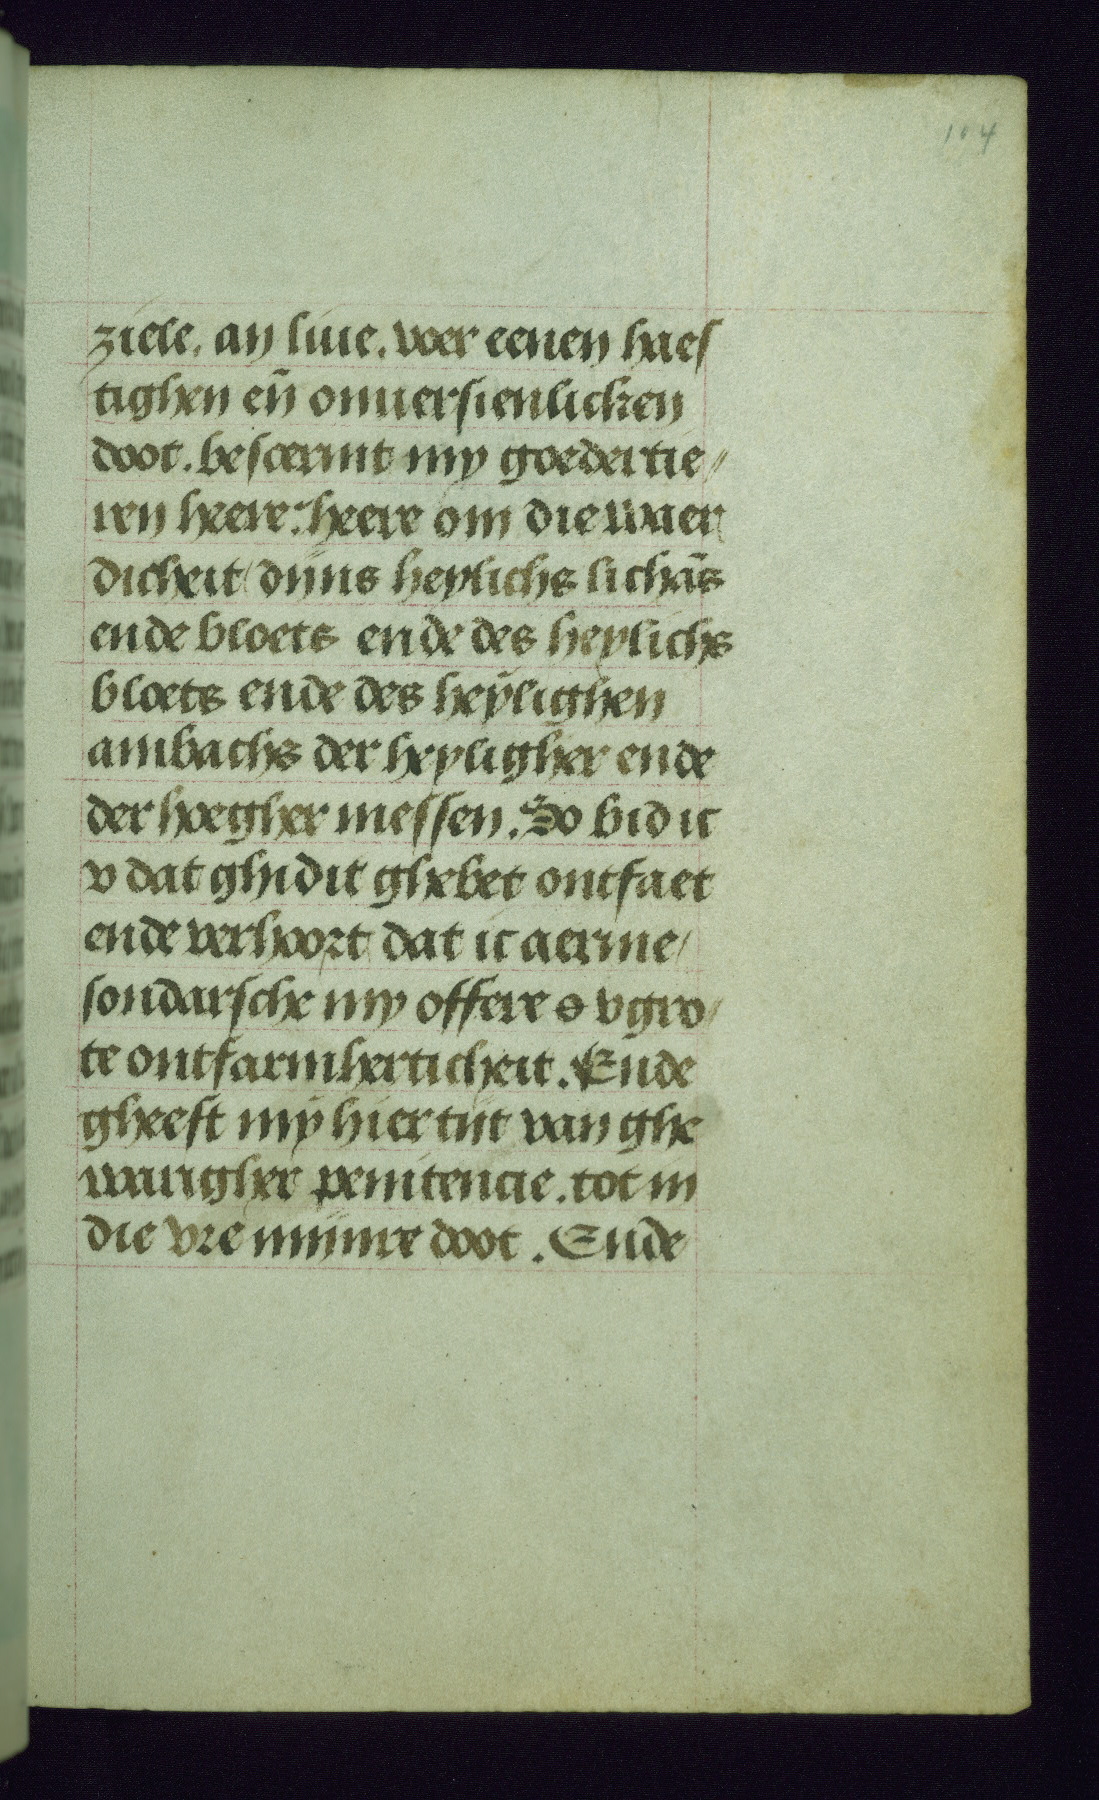 104
ziele. an liue. voer eenen haes
tighen en̄ onuersienlicken
doot. bescermt my goedertie//
ren heere: heere om die waer
dicheit dijns heylichs lichās
ende bloets ende des heylichs
bloets ende des heylighen
ambachs der heyligher ende
der hoegher messen. So bid ic
v dat ghi dit ghebet ontfaet
ende verhoort dat ic aerme/
sondarsche my offere o v gro/
te ontfarmherticheit. Ende
gheeft my hier tijt van ghe
waregher penitencie. tot in
die vre mijnre doot. Ende